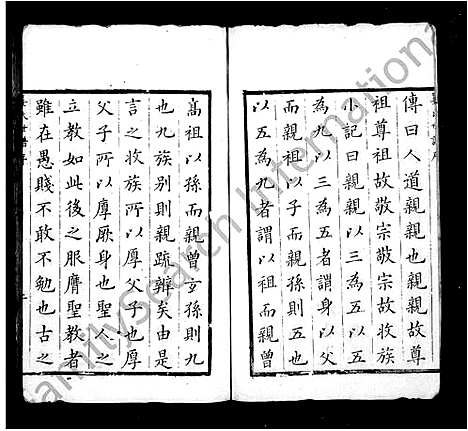 傳曰人道親親也親親故尊
祖尊祖故敬宗敬宗故收族
小記曰親親以三為五以五
為九以三為五者謂身以父
而親祖以子而親孫則五也
以五為九者謂以祖而親曾
高祖以孫而親曾玄孫則九
也九族别則親疏辨矣由是
言之收族所以厚父子也厚
父子所以厚厥身也聖人之
立教如此後之服膺聖教者
雖在愚賤不敢不勉也古之
FamilySearch International